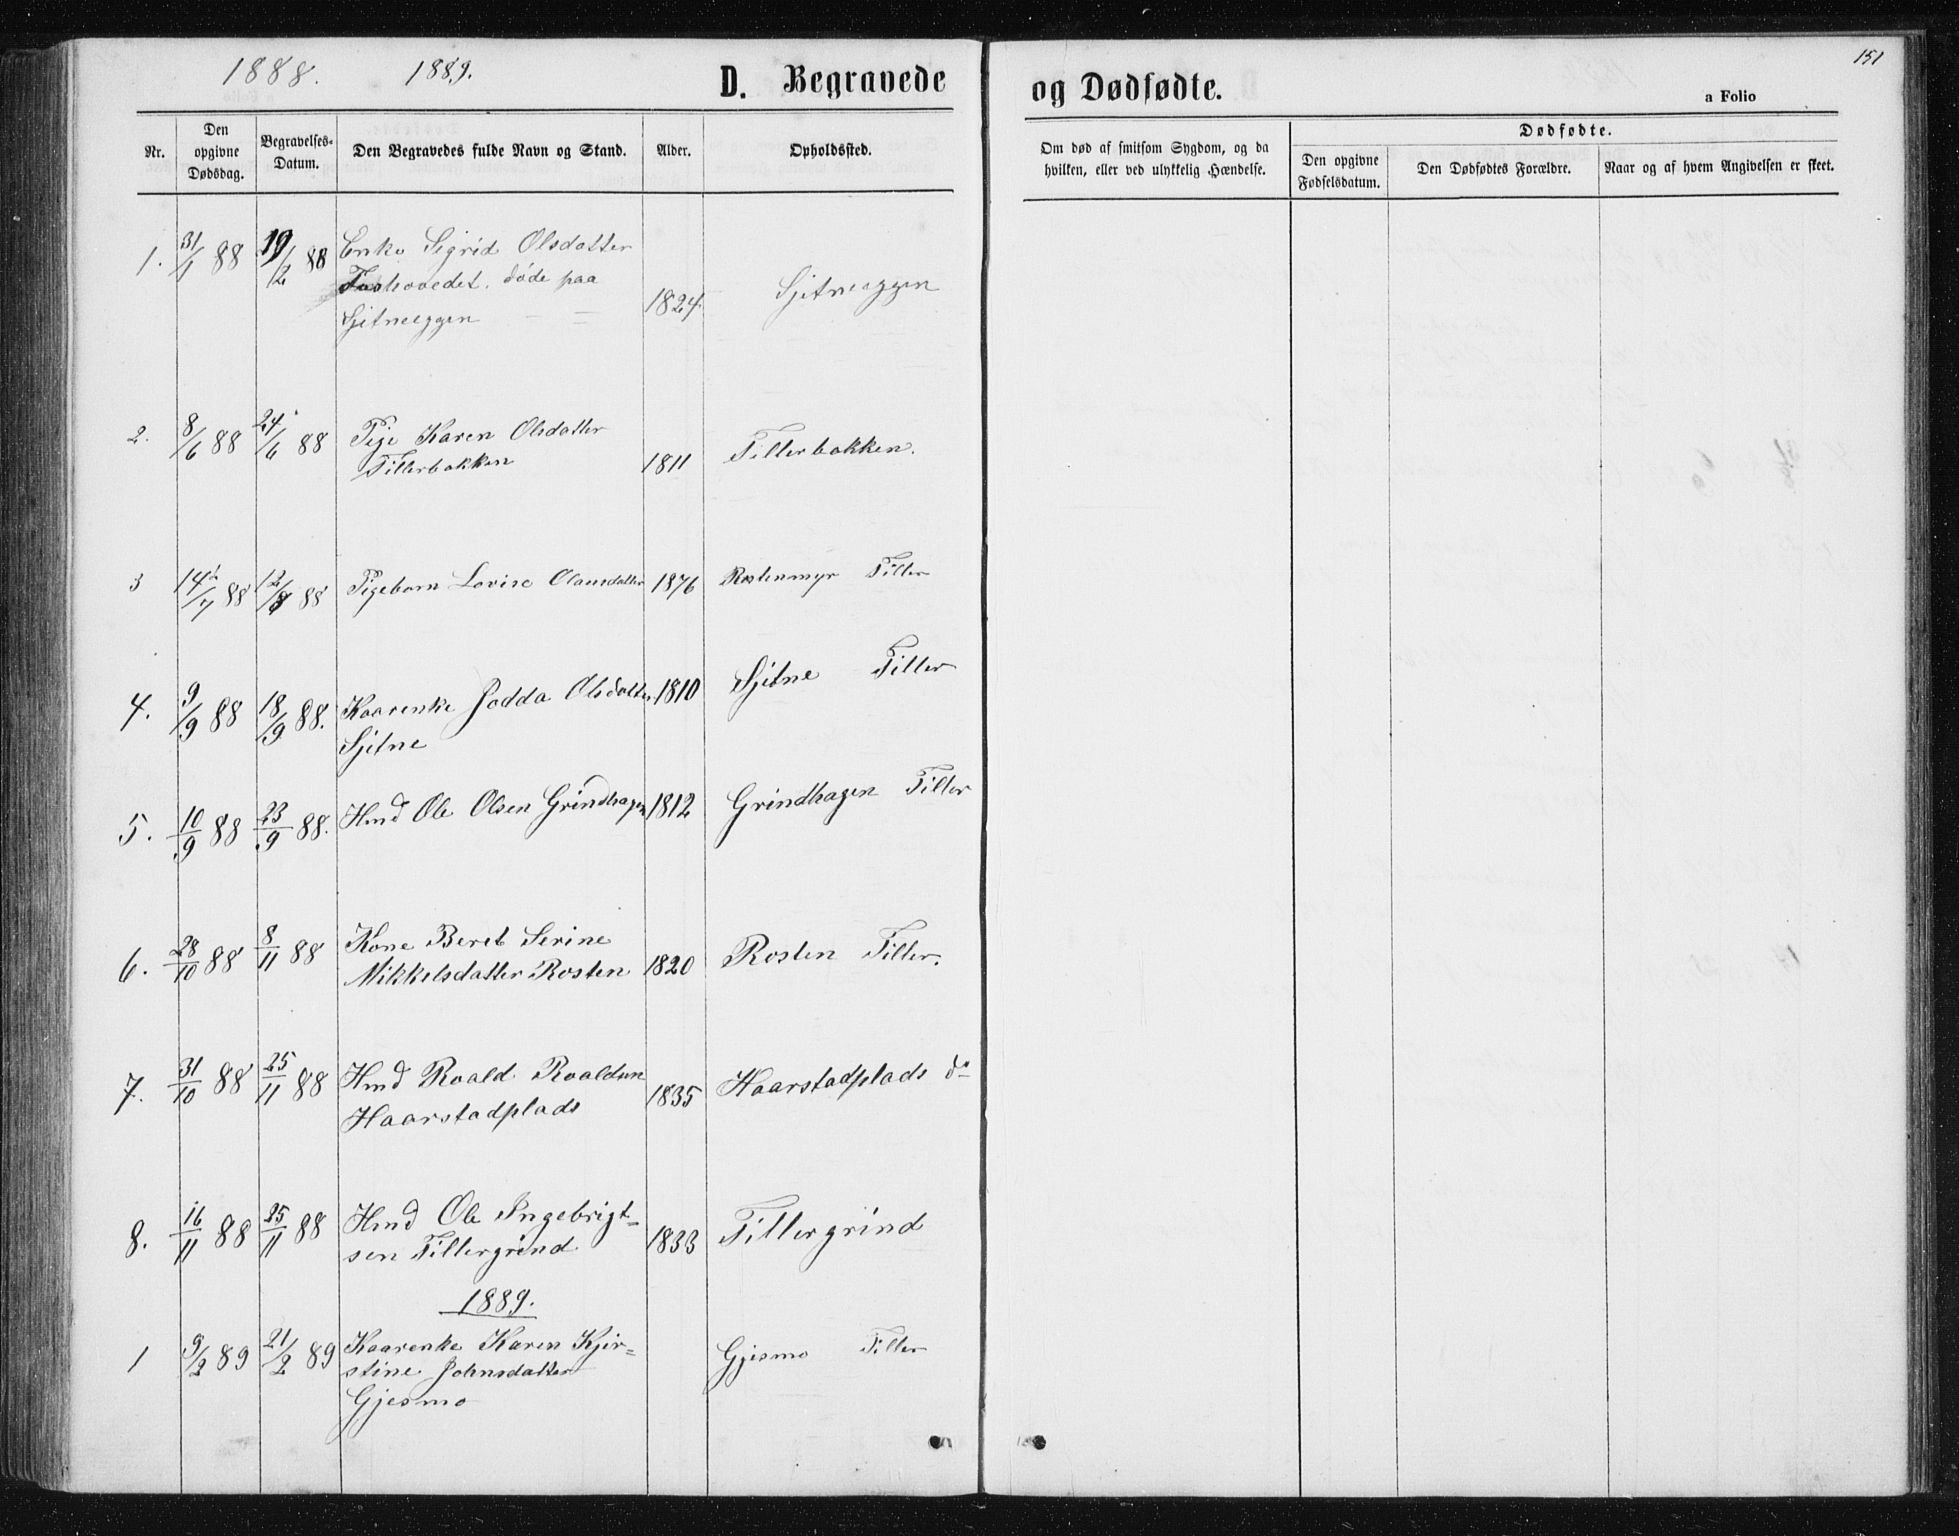 1888. 1889.
D. Begravede og Dødfødte.
151
a Folio
Nr.
Den opgivne Dødsdag.
Begravelses-Datum.
Den Begravedes fulde Navn og Stand.
Alder.
Opholdssted.
Om død af smitsom Sygdom, og da hvilken, eller ved ulykkelig Hændelse.
Dødfødte.
Den opgivne Fødselsdatum.
Den Dødfødtes Forældre.
Naar og af hvem Angivelsen er skeet.
1. 31/1 88 19/2 88 Enke Sigrid Olsdatter
døde paa
Sjetneeggen 1824 Sjetneeggen
2. 8/6 88 24/6 88 Pige Karen Olsdatter
Tillerbakken 1811 Tillerbakken.
3 14/7 88 12/8 88 Pigebarn Lovise Olausdatter 1876 Rostenmyr Tiller
4. 9/9 88 18/9 88. Kaarenke Jodda Olsdatter 1810 Sjetne Tiller
Sjetne
5. 10/9 88 23/9 88. Hmd Ole Olsen Grindhagen 1812 Grindhagen Tiller
6. 28/10 88 8/11 88 Kone Beret Serine
Mikkelsdatter Rosten 1820 Rosten Tiller.
7. 31/10 88 25/11 88 Hmd Roald Roaldsen
Haarstadplads 1835 Haarstadplads do
8. 16/11 88 25/11 88 Hmd Ole Ingebrigt=
sen Tillergrind 1833 Tillergrind
1889.
1 9/2 89 21/2 89 Kaarenke Karen Kjir=
stine Johnsdatter Gjesmo Tiller
Gjesmo